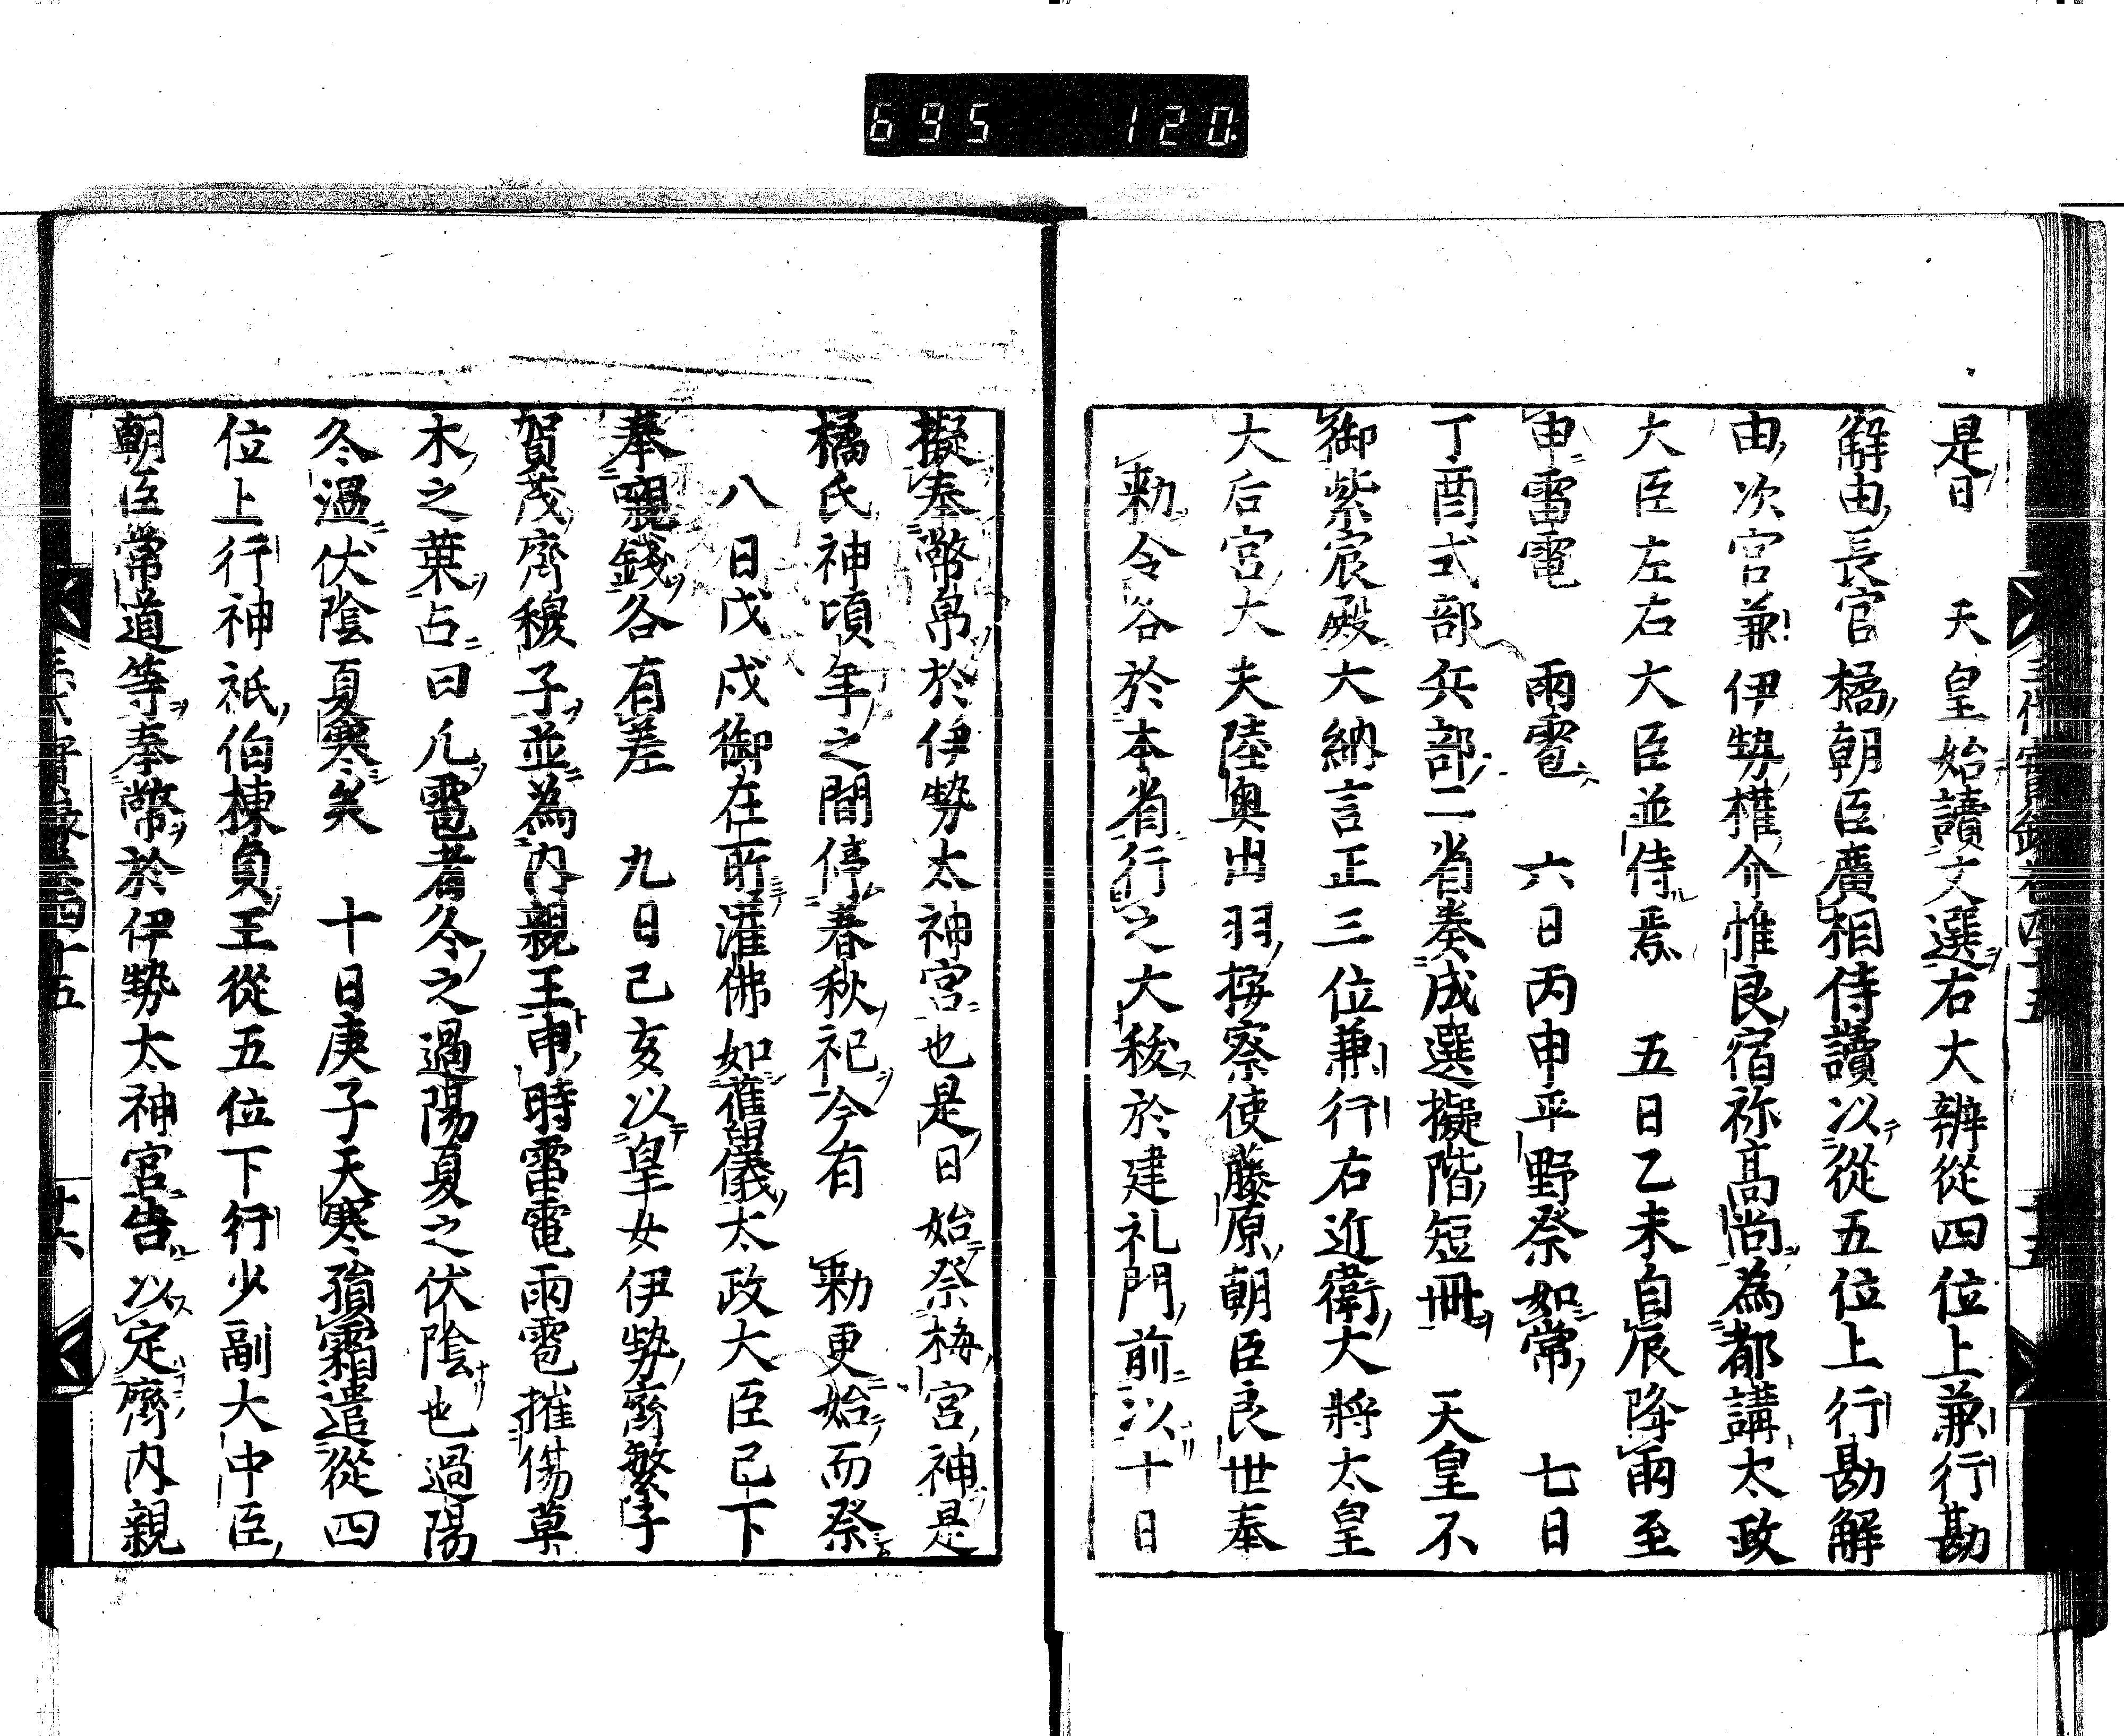 695 120
三代實録卷四十五 十五
是日 天皇始讀文選右大辨從四位上兼行勘
解由長官橘朝臣廣相侍讀以從五位上行勘解
由次官兼伊勢權介惟良宿祢高尚為都講太政
大臣左右大臣並侍焉 五日乙未自辰降雨至
申雷電 雨雹 六日丙申平野祭如常 七日
丁酉式部兵部二省奏成選擬階短冊 天皇不
御紫宸殿大納言正三位兼行右近衛大將太皇
大后宮大夫陸奥出羽按察使藤原朝臣良世奉
勅令各於本省行之大祓於建礼門前以十日
擬奉幣帛於伊勢太神宮也是日始祭梅宮神是
橘氏神頃年之間停春秋祀今有 勅更始而祭
八日戊戌御在所灌佛如舊儀太政大臣已下
奉嚫錢各有差 九日己亥以皇女伊勢齋繁子
賀茂齋穆子並為内親王申時雷電雨雹摧傷草
木之葉占曰凡雹者冬之過陽夏之伏陰也過陽
冬温伏陰夏寒矣 十日庚子天寒殞霜遣從四
位上行神祇伯棟貞王從五位下行少副大中臣
朝臣常道等奉幣於伊勢太神宮告以定齋内親
三代實録卷四十五 十六